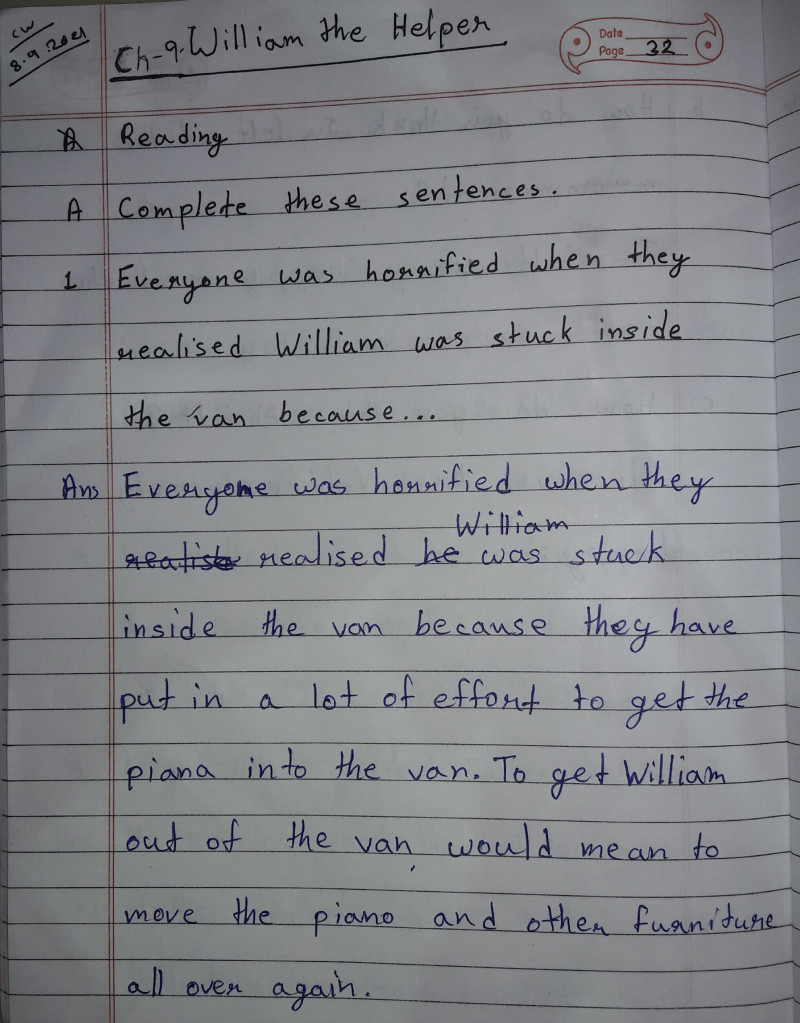 CW
8.9.2021
Ch-9. William the Helper
Date
Page 32
A Reading
A Complete these sentences.
1 Everyone was horrified when they
realised William was stuck inside
the van because...
Ans Everyone was horrified when they
William
realise realised he was stuck
inside the van because they have
put in a lot of effort to get the
piana into the van. To get William
out of the van, would mean to
move the piano and other furniture
all over again.